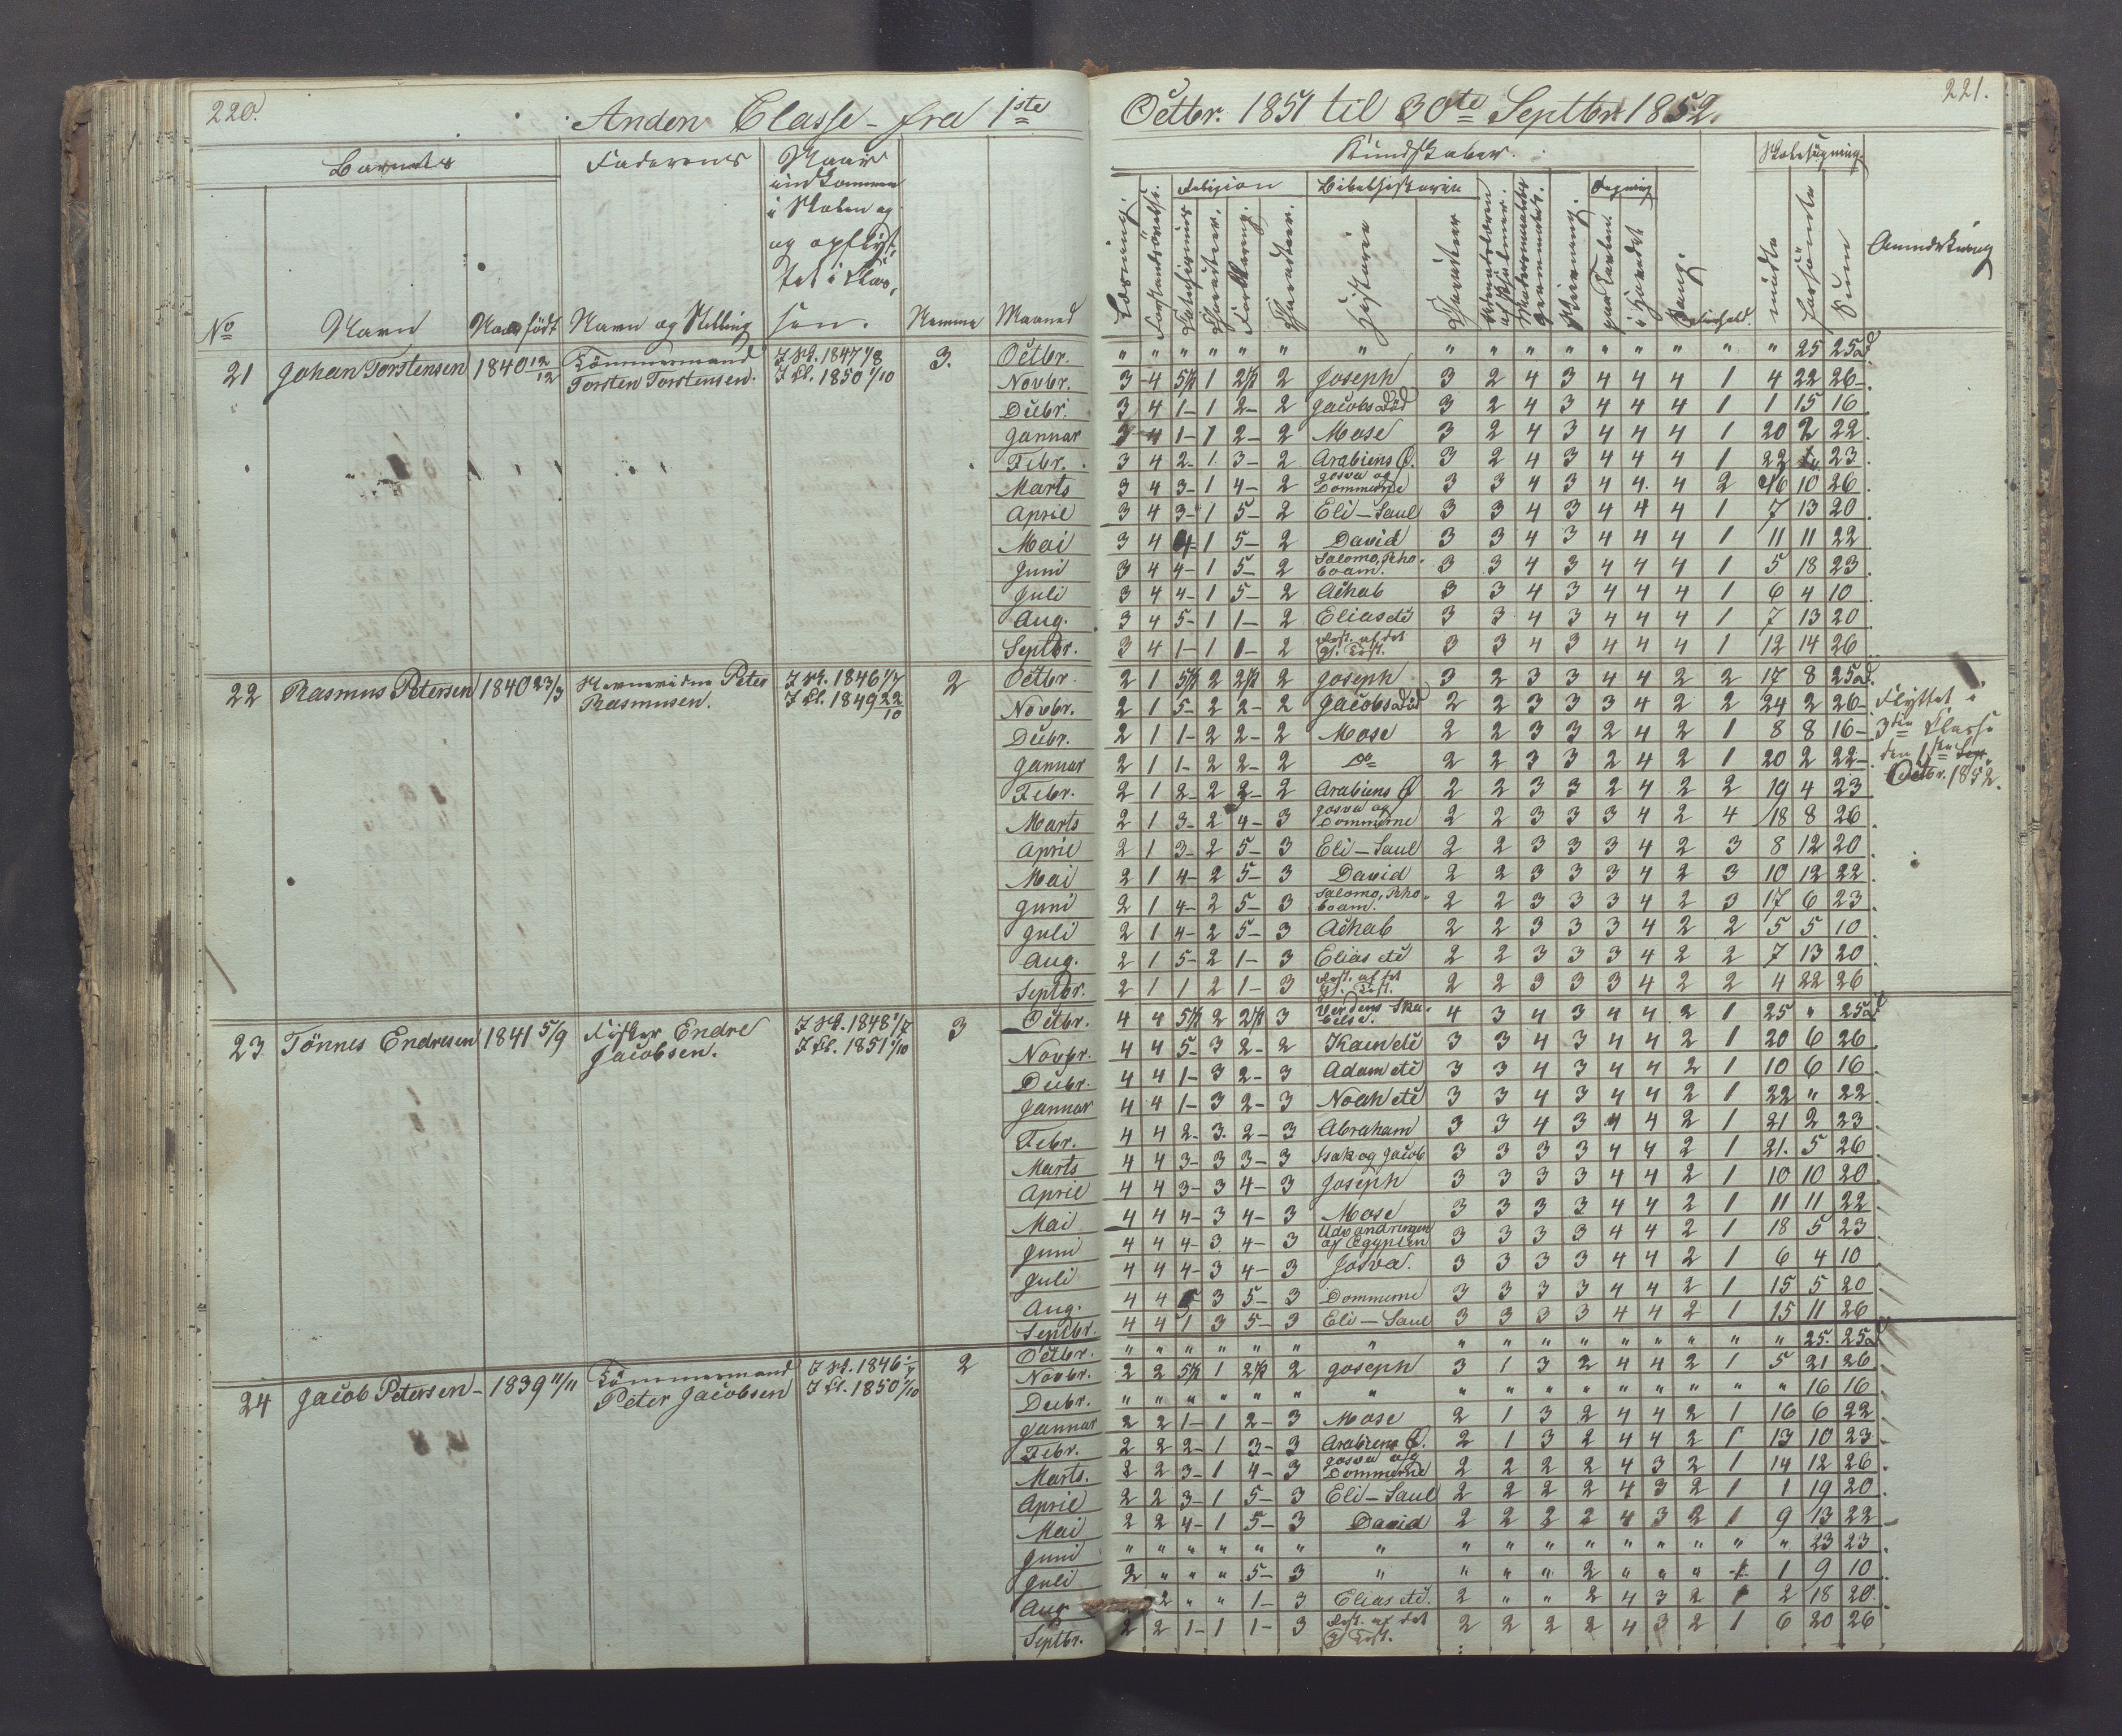 220.
Anden Classe - fra 1ste
Octbr. 1851 til 30te Septbr. 1852.
221.
Barnets
Faderens
Naar
indkommen
i Skolen og
og opflyt-
tet i Clas-
sen.
No
Navn
Naar født
Navn og Stilling
Nemme
Maaned
Kundskaber.
Skolesøgning.
Religion
Bibelhistorie
Regning
Læsning.
Forklaring.
Historie
Skrivning.
paa Tavlen
i Hovedet
Sang.
Forhold.
mødte
forsømte
Sum
Anmærkning
21 Johan Torstensen 1840 12/12 Tömmermand Torsten Torstensen. I Sk. 1847 1/8 I Cl. 1850 1/10 3.
Octbr. " " " " " " " " " " " " " " " " 25 25 d
Novbr. 3 4 5½ 1 2½ 2 Joseph 3 2 4 3 4 4 4 1 4 22 26
Decbr. 3 4 1 1 2 2 Jacobs Död 3 2 4 3 4 4 4 1 1 15 16
Januar 3 4 1 1 2 2 Mose 3 2 4 3 4 4 4 1 20 2 22
Febr. 3 4 2 1 3 2 Arabiens Ö. 3 2 4 3 4 4 4 1 22 1 23
Marts 3 4 3 1 4 2 Josva og Dommerne 3 3 4 3 4 4 4 2 16 10 26
April 3 4 3 1 5 2 Eli - Saul 3 3 4 3 4 4 4 1 7 13 20
Mai 3 4 4 1 5 2 David 3 3 4 3 4 4 4 1 11 11 22
Juni 3 4 4 1 5 2 Salomo, Rhoboam. 3 3 4 3 4 4 4 1 5 18 23
Juli 3 4 4 1 5 2 Achab 3 3 4 3 4 4 4 1 6 4 10
Aug. 3 4 5 1 1 2 Elias etc 3 3 4 3 4 4 4 1 7 13 20
Septbr. 3 4 1 1 1 2 Rest. af det Gl. Test. 3 3 4 3 4 4 4 1 12 14 26
22 Rasmus Petersen 1840 23/3 Peter Rasmusen. I Sk. 1846 1/7 I Cl. 1849 22/10 2
Octbr. 2 1 5½ 2 2½ 2 Joseph 3 2 3 3 4 4 2 2 17 8 25 d.
Novbr. 2 1 5 2 2 2 Jacobs Död 2 2 3 3 3 4 2 2 24 2 26
Decbr. 2 1 1 2 2 2 Mose 2 2 3 3 2 4 2 1 8 8 16
Januar 2 1 1 2 2 2 Do 2 2 3 3 2 4 2 1 20 2 22
Febr. 2 1 2 2 2 2 Arabiens Ö 2 2 3 3 2 4 2 2 19 4 23
Marts 2 1 3 2 4 3 Josva og Dommerne 2 2 3 3 3 4 2 4 18 8 26
April 2 1 3 2 5 3 Eli - Saul 2 2 3 3 3 4 2 3 8 12 20
Mai 2 1 4 2 5 3 David 2 2 3 3 3 4 2 3 10 12 22
Juni 2 1 4 2 5 3 Salomo, Rhoboam. 2 2 3 3 3 4 2 3 17 6 23
Juli 2 1 4 2 5 3 Achab 2 2 3 3 3 4 2 2 5 5 10
Aug. 2 1 5 2 1 3 Elias etc 2 2 3 3 3 4 2 2 7 13 20
Septbr. 2 1 1 2 1 3 Rest. af det Gl. Test. 2 2 3 3 3 4 2 2 4 22 26
Flyttet i
3die Classe
den 1ste Sep.
Octbr. 1852.
23 Tönnes Endresen 1841 5/9 Fisker Endre Jacobsen. I Sk. 1848 1/7 I Cl. 1851 1/10 3
Octbr. 4 4 5½ 2 2½ 3 Verdens Skabelse. 4 3 4 3 4 4 2 1 25 " 25 d
Novbr. 4 4 5 3 2 2 Kain etc 3 3 4 3 4 4 2 1 20 6 26
Decbr. 4 4 1 3 2 3 Adam etc 3 3 4 3 4 4 2 1 10 6 16
Januar 4 4 1 3 2 3 Noah etc 3 3 4 3 4 4 2 1 22 " 22
Febr. 4 4 2 3 2 3 Abraham 3 3 4 3 4 4 2 1 21 2 23
Marts 4 4 3 3 3 3 Isak og Jacob 3 3 3 3 4 4 2 1 21. 5 26
April 4 4 3 3 4 3 Joseph 3 3 3 3 4 4 2 1 10 10 20
Mai 4 4 4 3 4 3 Mose 3 3 3 3 4 4 2 1 11 11 22
Juni 4 4 4 3 4 3 Udvandringen af Egypten 3 3 3 3 4 4 2 1 18 5 23
Juli 4 4 4 3 4 3 Josva. 3 3 3 3 4 4 2 1 6 4 10
Aug. 4 4 5 3 5 3 Dommerne 3 3 3 3 4 4 2 1 15 5 20
Septbr. 4 4 1 3 5 3 Eli - Saul 3 3 3 3 4 4 2 1 15 11 26
24 Jacob Petersen 1839 11/11 Tömmermand Peter Jacobsen I Sk. 1846 I Cl. 1850 1/10 2
Octbr. " " " " " " " " " " " " " " " " 25. 25 d
Novbr. 2 2 5½ 1 2½ 2 Joseph 3 1 3 2 4 4 2 1 5 21 26
Decbr. " " " " " " " " " " " " " " " " 16 16
Januar 2 2 1 1 2 3 Mose 2 1 3 2 4 4 2 1 16 6 22
Febr. 2 2 2 1 3 3 Arabiens Ö. 2 1 3 2 4 4 2 1 13 10 23
Marts. 2 2 3 1 4 3 Josva og Dommerne 2 2 2 2 4 3 2 1 14 12 26
April 2 2 3 1 5 3 Eli - Saul 2 2 2 2 4 3 2 1 1 19 20
Mai 2 2 4 1 5 3 David 2 2 2 2 4 3 2 1 9 13 22
Juni " " " " " " " " " " " " " " " " 23 23
Juli 2 " " " 5 3 " " " " 2 " " " 1 1 9 10
Aug 2 " " 1 3 Elias etc. 2 " " 2 4 3 2 1 2 18 20
Septbr. 2 2 1 1 1 3 Rest. af det Gl Test. 2 2 2 2 4 3 2 1 6 20 26